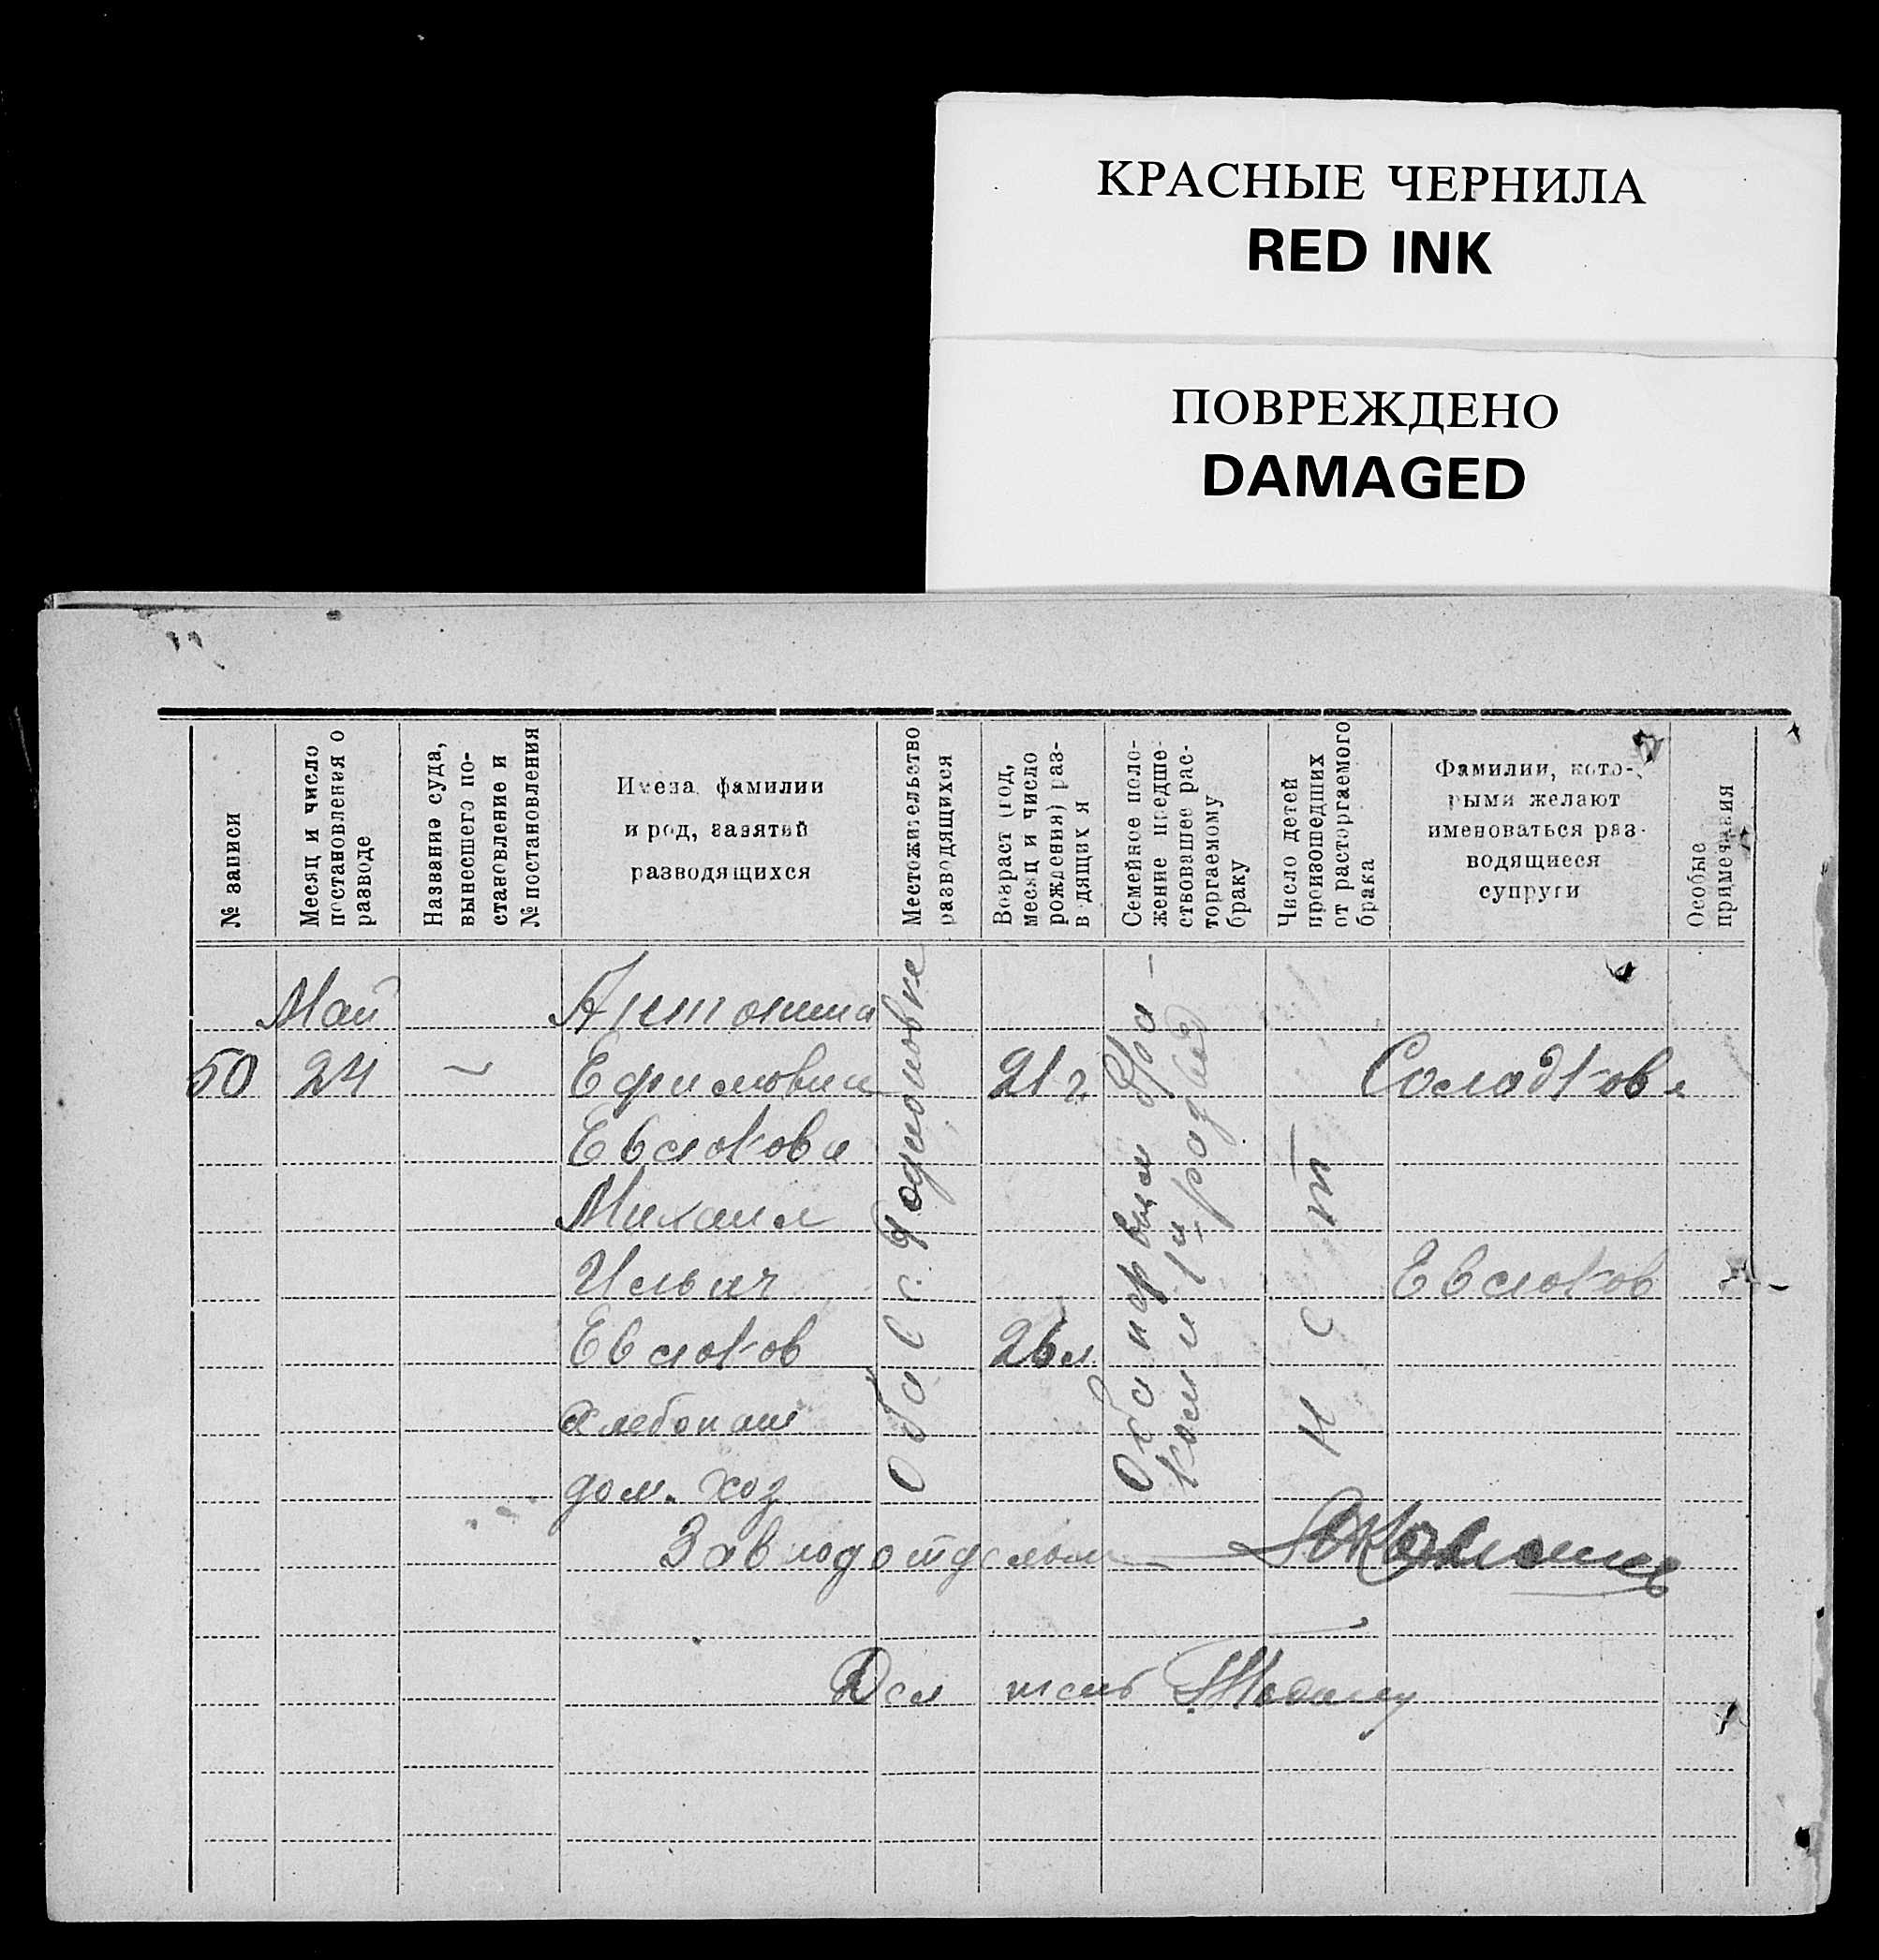 КРАСНЫЕ ЧЕРНИЛА
RED INK
ПОВРЕЖДЕНО
DAMAGED
№ записи
Месяц и число
постановления о
разводе
Название суда,
вынесшего по-
становление и
№ постановления
Имена, фамилии
и род, занятий
разводящихся
Местожительство
разводящихся
Возраст (год,
месяц и число
рождения) раз-
в дящих я
Семейное поло-
жение предше-
ствовавшее рас-
торгаемому
браку
Число детей
происшедших
от расторгаемого
брака
Фамилии, кото-
рыми желают
именоваться раз-
водящиеся
супруги
Особые
примечания
Май
50
24
Антонина
Ефимовна
Евсюкова
Михаил
Ильич
Евсюков
хлебопаш
дом. хоз
Оба с с.
21 г
26 л
Оба первым бра-
ком и
нет
Солодкова
Евсюков
Зав подотделом